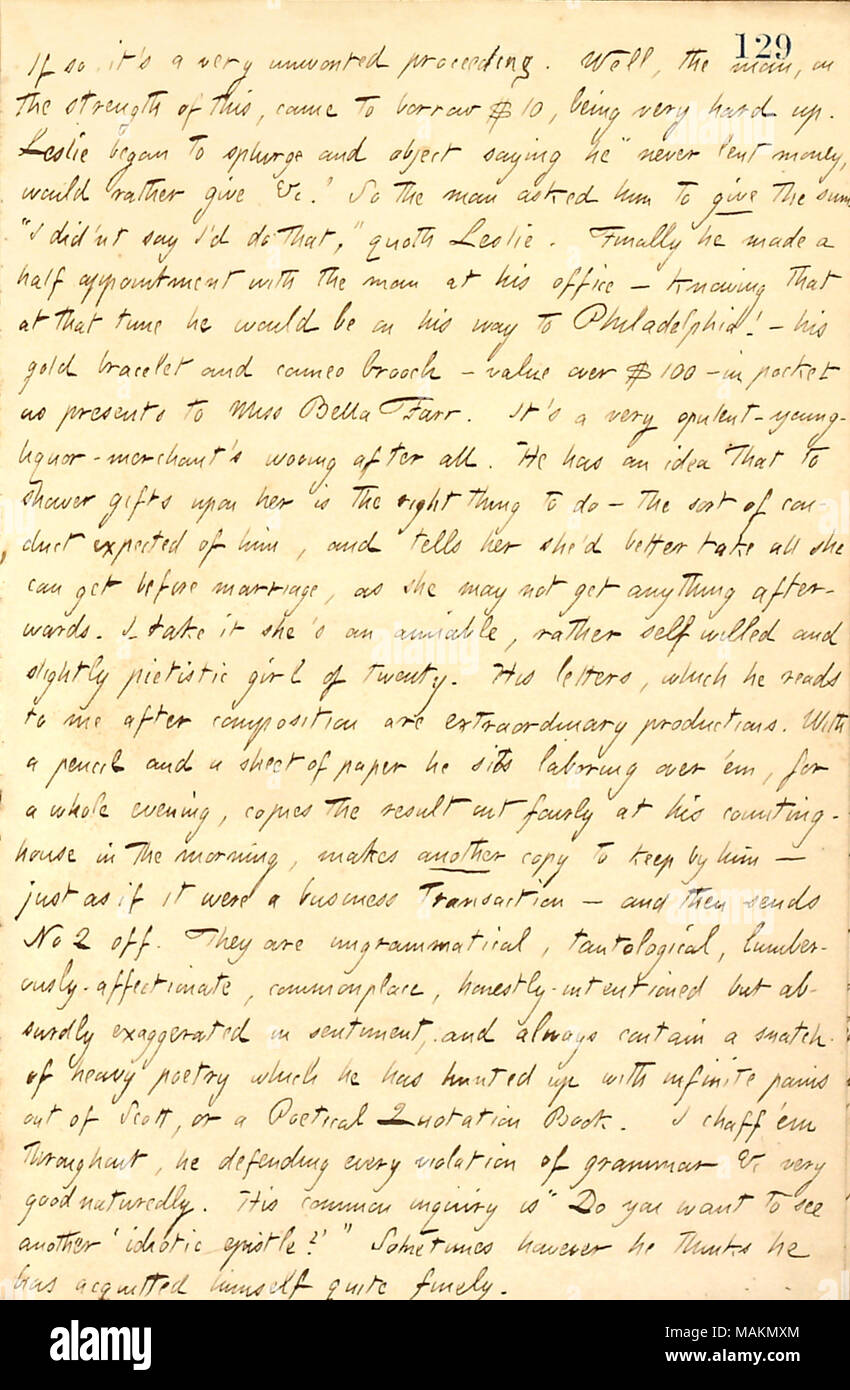 129
If so it's a very unwonted proceeding. Well, the man, on
the strength of this, came to borrow $10, being very hard up.
Leslie began to splurge and object saying he "never lent money,
would rather give &c." So the man asked him to give the sum
"I did'nt say I'd do that," quoth Leslie. Finally he made a
half appointment with the man at his office — knowing that
at that time he would be on his way to Philadelphia! — his
gold bracelet and cameo brooch — value over $100 — in pocket
as presents to Miss Bella Farr. It's a very opulent-young-
liquor-merchant's wooing after all. He has an idea that to
shower gifts upon her is the right thing to do — the sort of con-
duct expected of him, and tells her she'd better take all she
can get before marriage, as she may not get anything after-
wards. I take it she's an amiable, rather self willed and
slightly pietistic girl of twenty. His letters, which he reads
to me after composition are extraordinary productions. With
a pencil and a sheet of paper he sits laboring over 'em, for
a whole evening, copies the result out fairly at his counting-
house in the morning, makes another copy to keep by him —
just as if it were a business transaction — and then sends
No 2 off. They are ungrammatical, tautological, lumber-
ously-affectionate, commonplace, honestly-intentioned but ab-
surdly exaggerated in sentiment, and always contain a snatch
of heavy poetry which he has hunted up with infinite pains
out of Scott, or a Poetical Quotation Book. I chaff 'em
throughout, he defending every violation of grammar &c very
good naturedly. His common inquiry is "Do you want to see
another 'idiotic epistle?'" Sometimes however he thinks he
has acquitted himself quite finely.
alamy
Image ID: MAKMXM
www.alamy.com